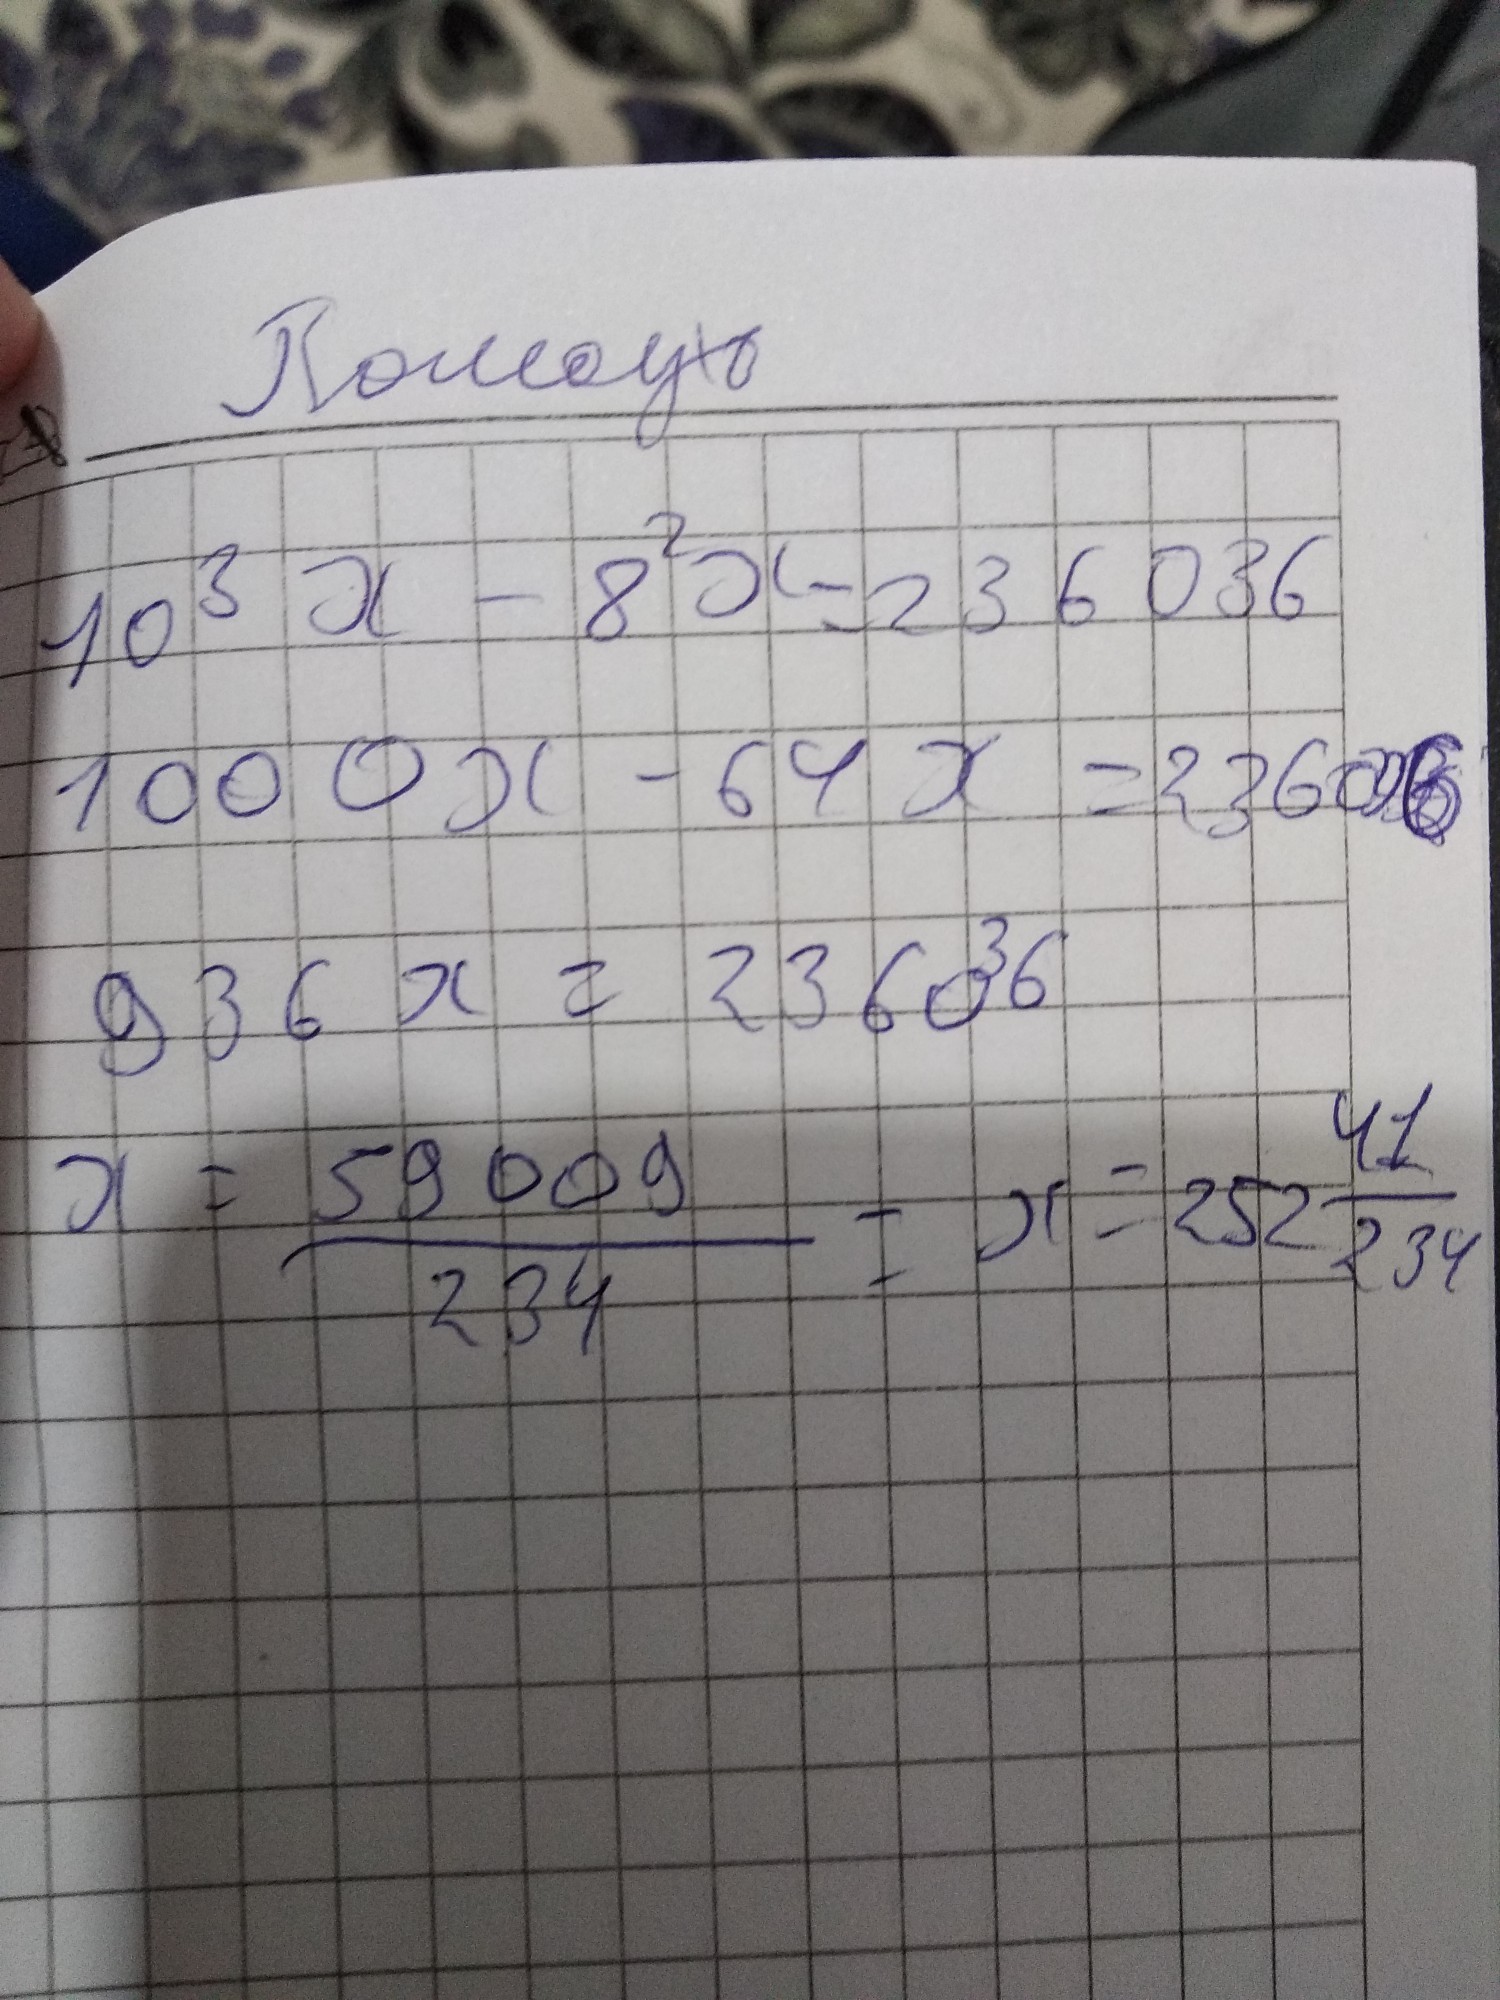 10³x - 8²x = 236036
1000x - 64x = 236036
936x = 236036
x = 59009/234 = x = 252 41/234